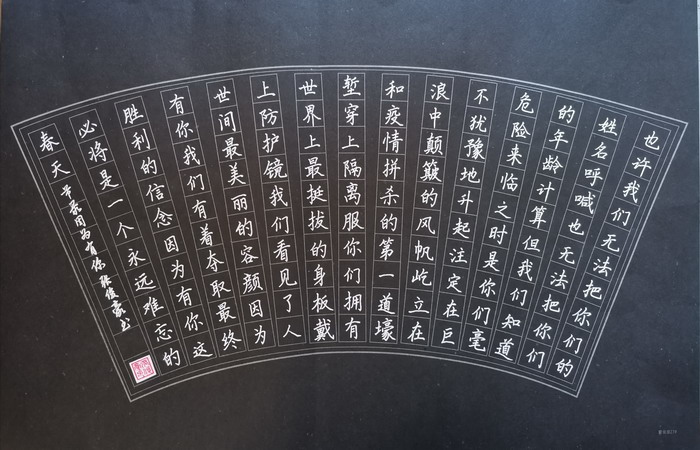 也许我们无法把你们的
姓名呼喊也无法把你们
的年龄计算但我们知道
危险来临之时是你们毫
不犹豫地升起注定在巨
浪中颠簸的风帆屹立在
和疫情拼杀的第一道壕
堑穿上隔离服你们拥有
世界上最挺拔的身板戴
上防护镜我们看见了人
世间最美丽的容颜因为
有你我们有着夺取最终
胜利的信念因为有你这
必将是一个永远难忘的
春天 节录因为有你